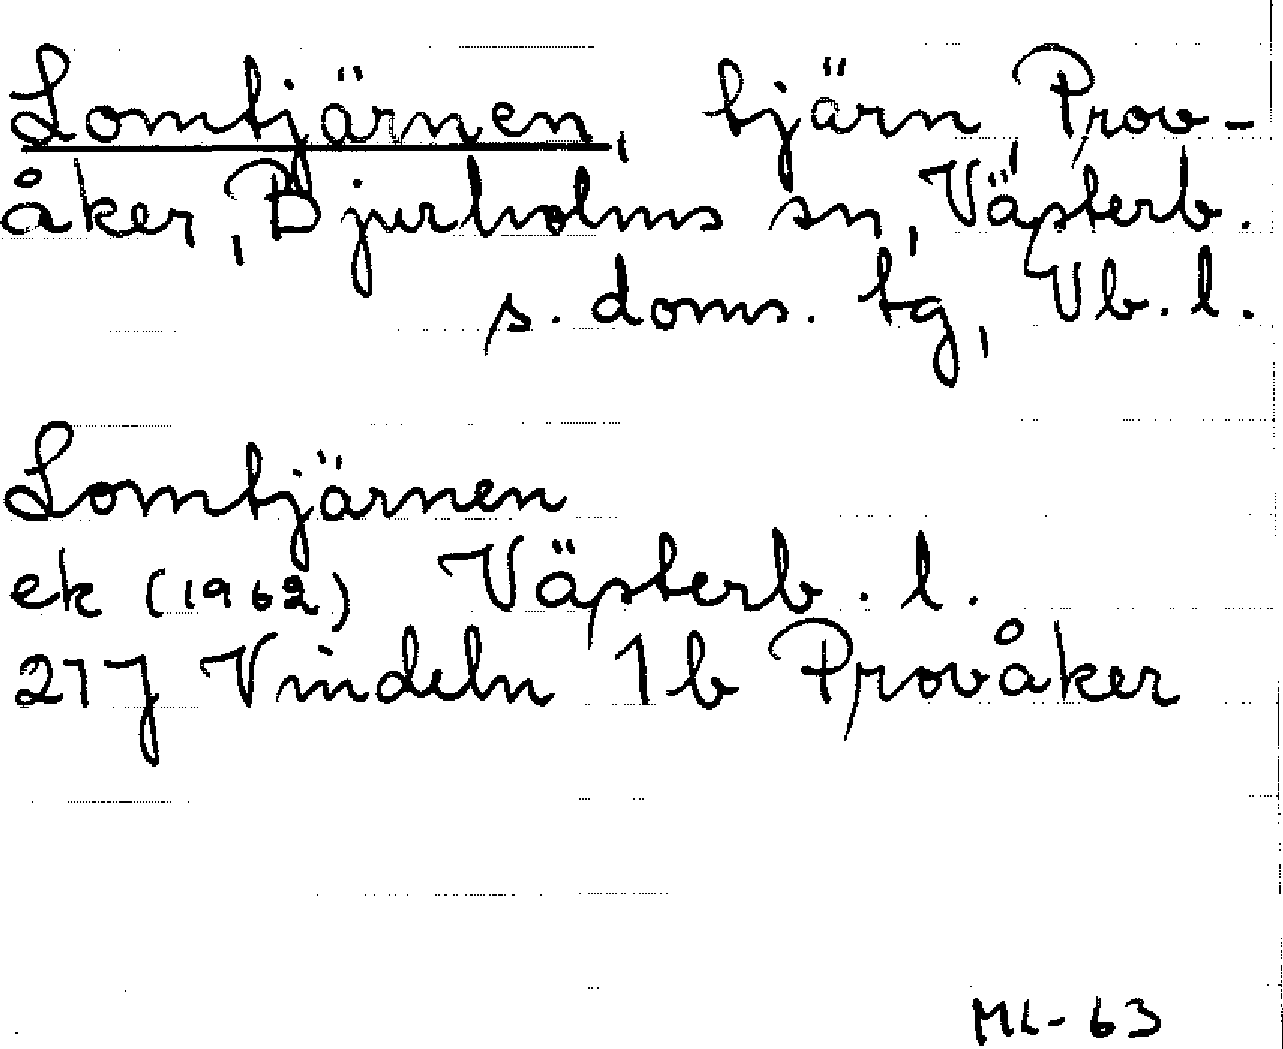 Lomtjärnen, tjärn Prov-
åker, Bjurholms sn, Västerb.
s. doms. tg, Vb. l.
Lomtjärnen
ek (1962) Västerb. l.
21J Vindeln 1b Provåker
ML-63